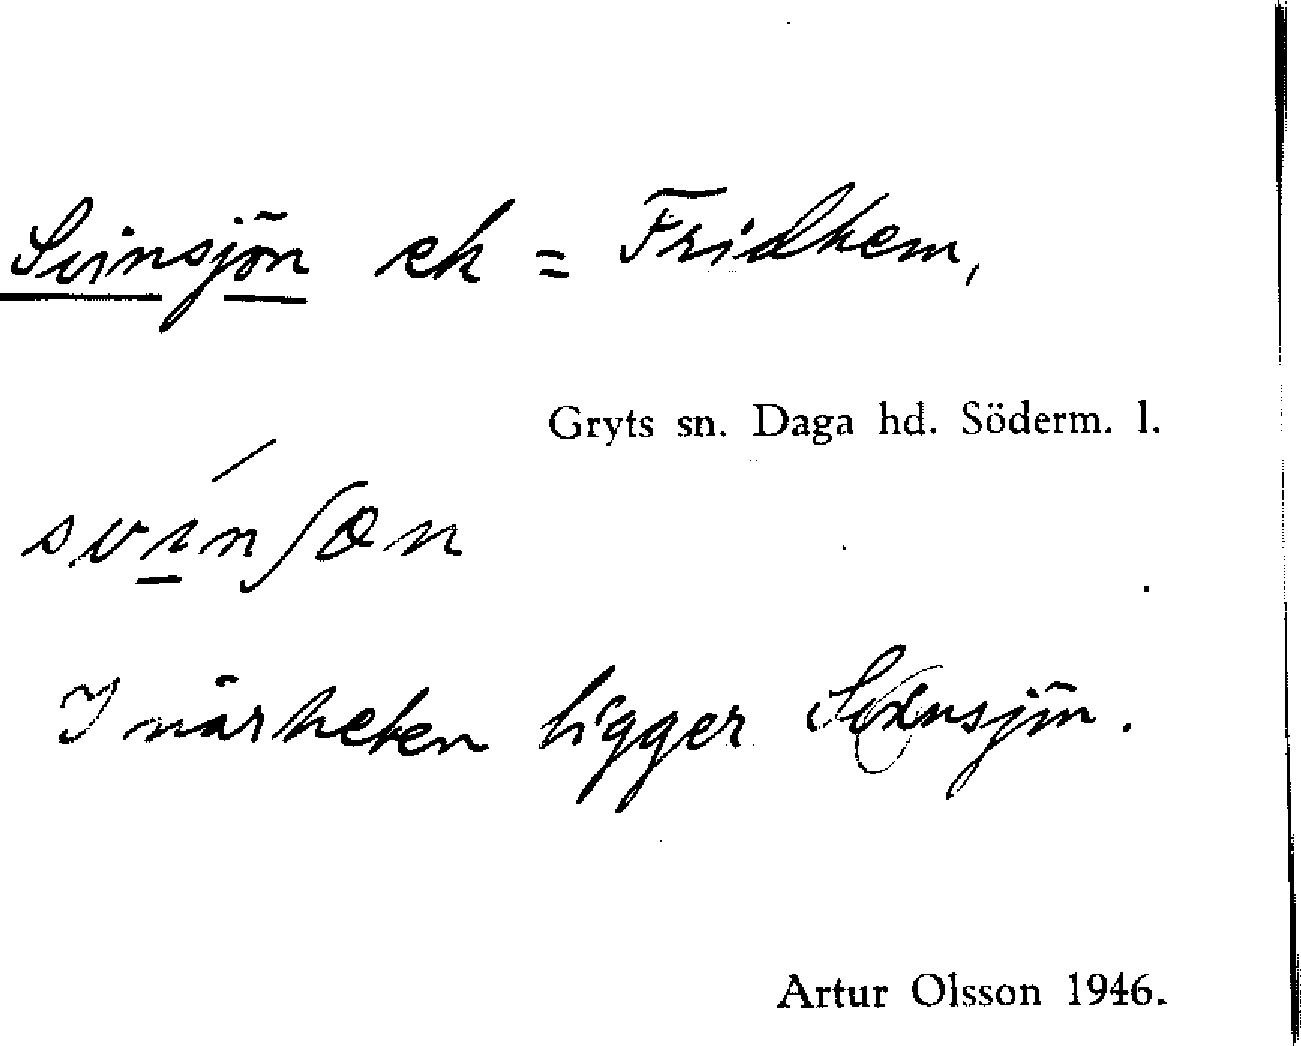 Svinsjön ek = Fridhem,
Gryts sn. Daga hd. Söderm. l.
svínʃɵn
I närheten ligger Svinsjön.
Artur Olsson 1946.